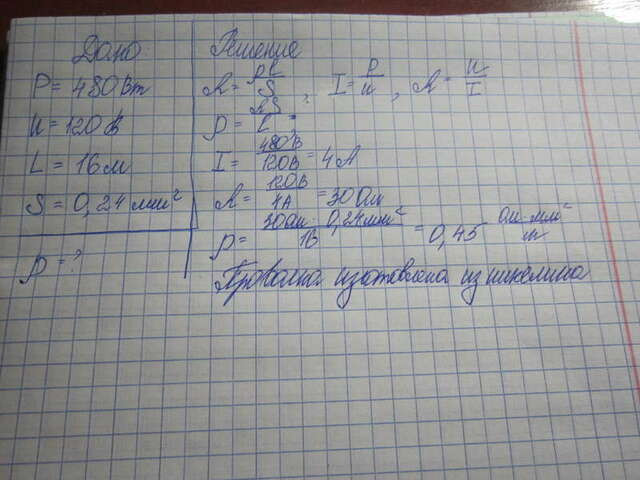 Дано:
P = 480 Вт
U = 120 В
L = 16 м
S = 0,24 мм²
ρ = ?
Решение
R = ρl/S ; I = P/U , R = U/I
ρ = RS/L ;
I = 480 В/120 В = 4 А
R = 120 В/4А = 30 Ом
ρ = 30 Ом · 0,24 мм²/16 = 0,45 Ом·мм²/м
Проволка изготовлена из никелина